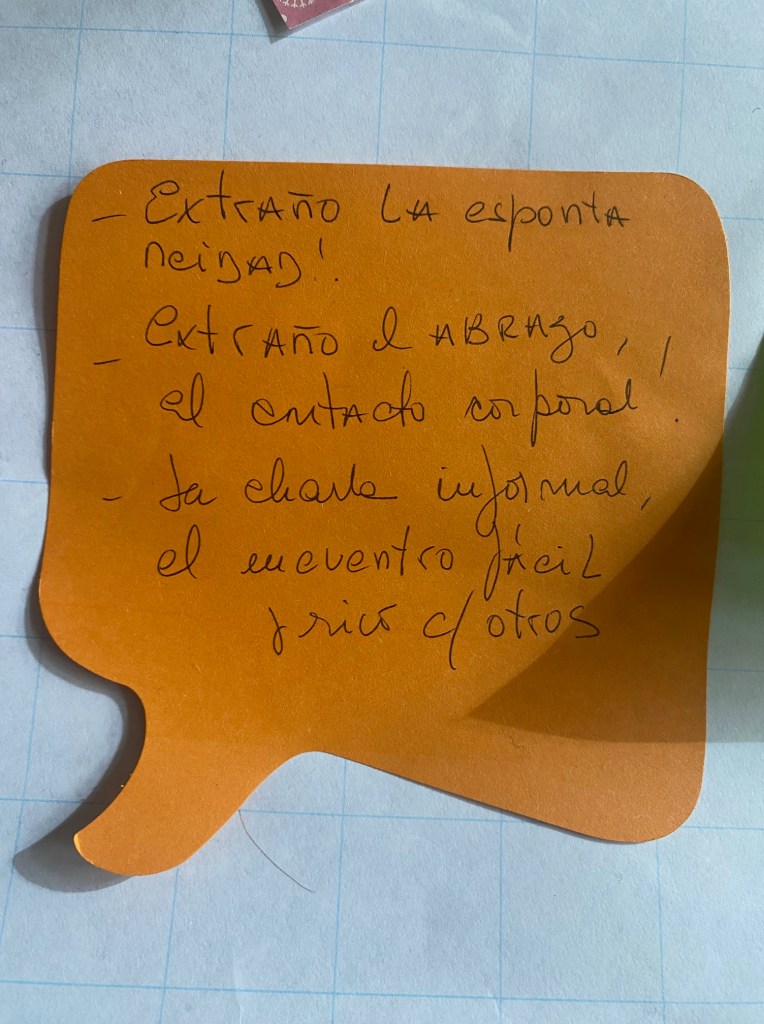 - Extraño la esponta
neidad!.
- Extraño el ABRAZO,
el contacto corporal!.
- La charla informal,
el encuentro fácil
y rico c/ otros